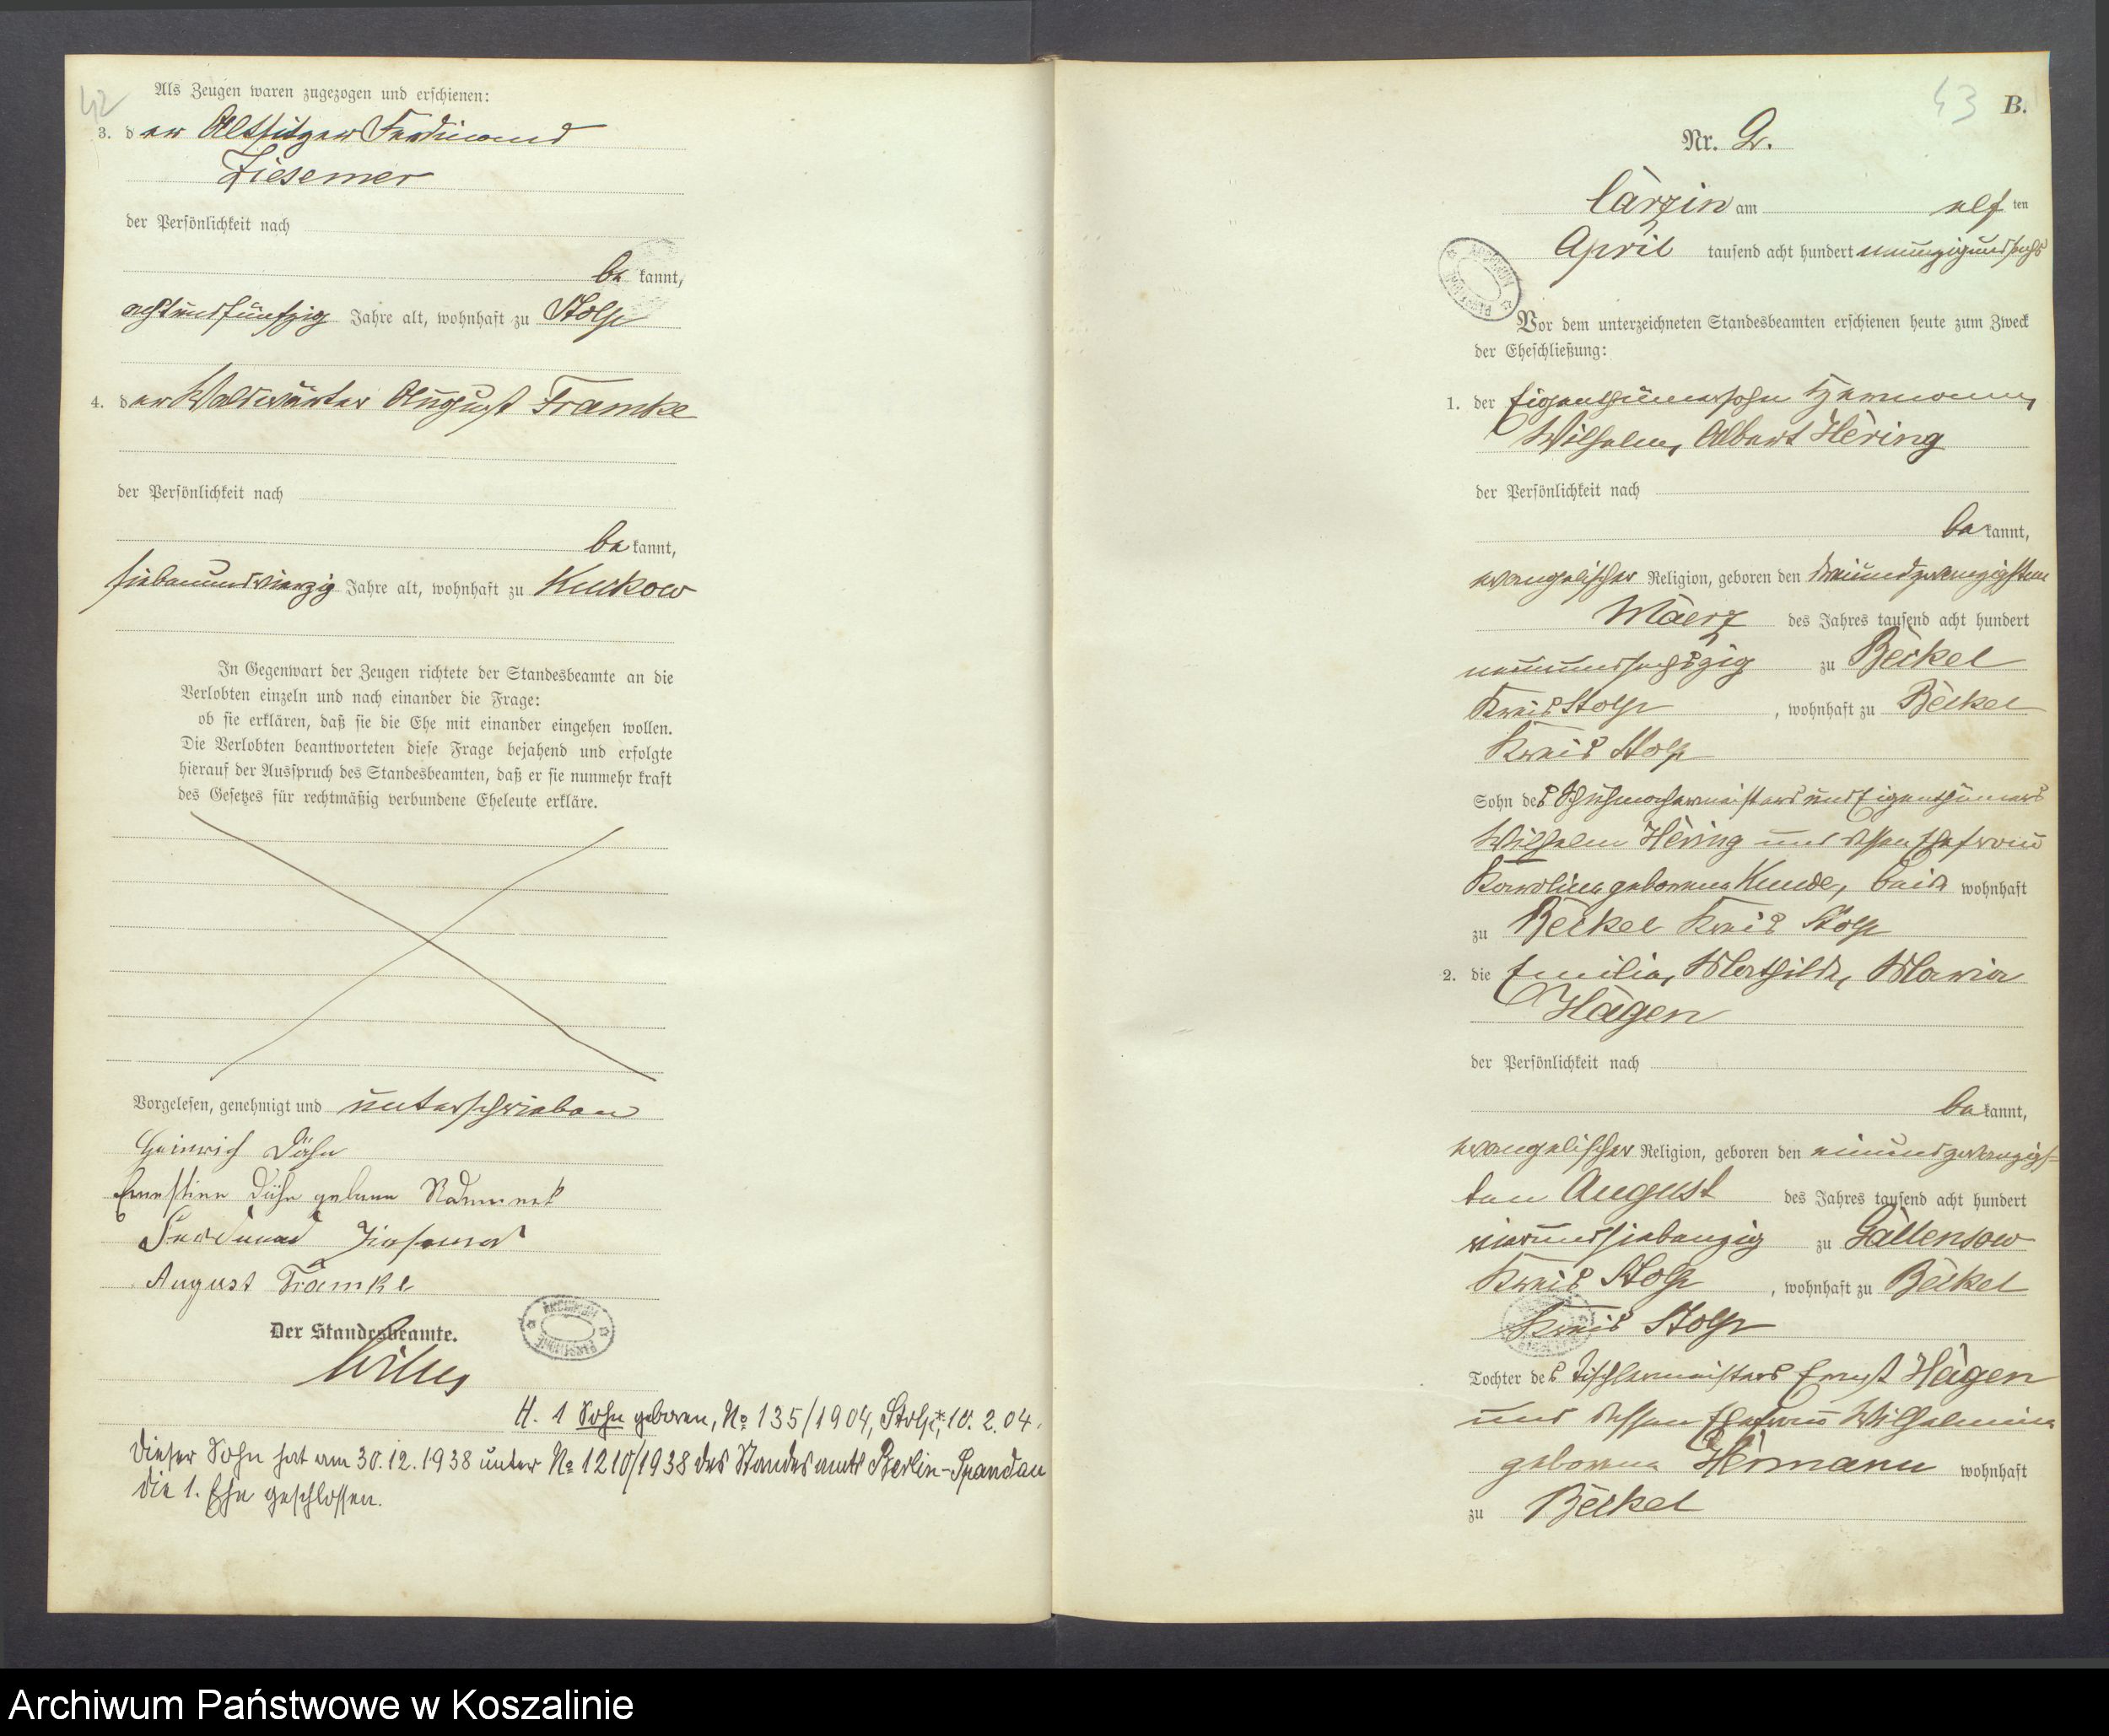 42
Als Zeugen waren zugezogen und erschienen:
3. der Altsitzer Ferdinand
Ziesemer
der Persönlichkeit nach
be kannt,
achtundfünfzig Jahre alt, wohnhaft zu Stolp
4. der Waldwärter August Framke
der Persönlichkeit nach
be kannt,
siebenundvierzig Jahre alt, wohnhaft zu Kuskow
In Gegenwart der Zeugen richtete der Standesbeamte an die
Verlobten einzeln und nach einander die Frage:
ob sie erklären, daß sie die Ehe mit einander eingehen wollen.
Die Verlobten beantworteten diese Frage bejahend und erfolgte
hierauf der Ausspruch des Standesbeamten, daß er sie nunmehr kraft
des Gesetzes für rechtmäßig verbundene Eheleute erkläre.
Vorgelesen, genehmigt und unterschrieben
Heinrich
Ernestine geborne
Ferdinand Ziesemer
August Framke
Der Standesbeamte.
H. 1 Sohn geboren, No 135/1904, Stolp, *10. 2. 04.
Dieser Sohn hat am 30.12.1938 unter No 1210/1938 des Standesamts Berlin-Spandau
die 1. Ehe geschlossen.
43 B.
Nr. 2.
Carzin am elf ten
April tausend acht hundert neunzigundsechs
Vor dem unterzeichneten Standesbeamten erschienen heute zum Zweck
der Eheschließung:
1. der Eigenthümersohn Hermann,
Wilhelm, Albert Hering
der Persönlichkeit nach
be kannt,
evangelischer Religion, geboren den dreiundzwanzigsten
Maerz des Jahres tausend acht hundert
neunundsechszig zu Beckel
Kreis Stolp, wohnhaft zu Beckel
Kreis Stolp
Sohn des Schuhmachermeisters und Eigenthümers
Wilhelm Hering und dessen Ehefrau
Karoline geborene Kunde, beide wohnhaft
zu Beckel Kreis Stolp
2. die Emilie, Mathilde, Marie
Hagen
der Persönlichkeit nach
be kannt,
evangelischer Religion, geboren den einundzwanzigs-
ten August des Jahres tausend acht hundert
vierundsiebenzig zu Gallensow
Kreis Stolp, wohnhaft zu Beckel
Kreis Stolp
Tochter des Tischlermeisters Ernst Hagen
und dessen Ehefrau Wilhelmine
geborene Hermann wohnhaft
zu Beckel
Archiwum Państwowe w Koszalinie